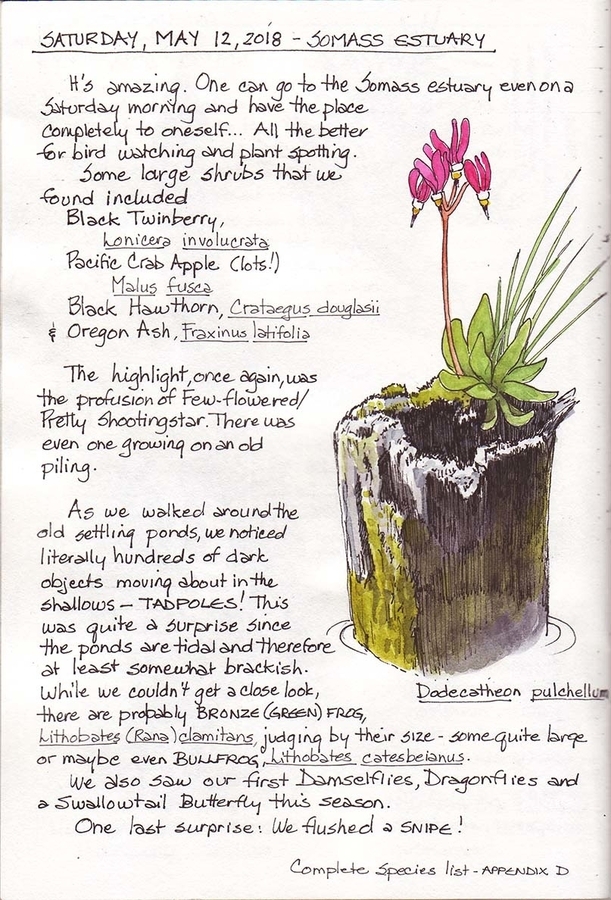 SATURDAY, MAY 12, 2018 - SOMASS ESTUARY
It's amazing. One can go to the Somass estuary even on a
Saturday morning and have the place
completely to oneself... All the better
for bird watching and plant spotting.
Some large shrubs that we
found included
Black Twinberry,
Lonicera involucrata
Pacific Crab Apple (lots!)
Malus fusca
Black Hawthorn, Crataegus douglasii
& Oregon Ash, Fraxinus latifolia
The highlight, once again, was
the profusion of Few-flowered/
Pretty Shootingstar. There was
even one growing on an old
piling.
As we walked around the
old settling ponds, we noticed
literally hundreds of dark
objects moving about in the
shallows - TADPOLES! This
was quite a surprise since
the ponds are tidal and therefore
at least somewhat brackish.
While we couldn't get a close look,
there are probably BRONZE (GREEN) FROG,
Lithobates (Rana) clamitans, judging by their size - some quite large
or maybe even BULLFROG, Lithobates catesbeianus.
We also saw our first Damselflies, Dragonflies and
a Swallowtail Butterfly this season.
One last surprise: We flushed a SNIPE!
Dodecatheon pulchellum
Complete Species list - APPENDIX D